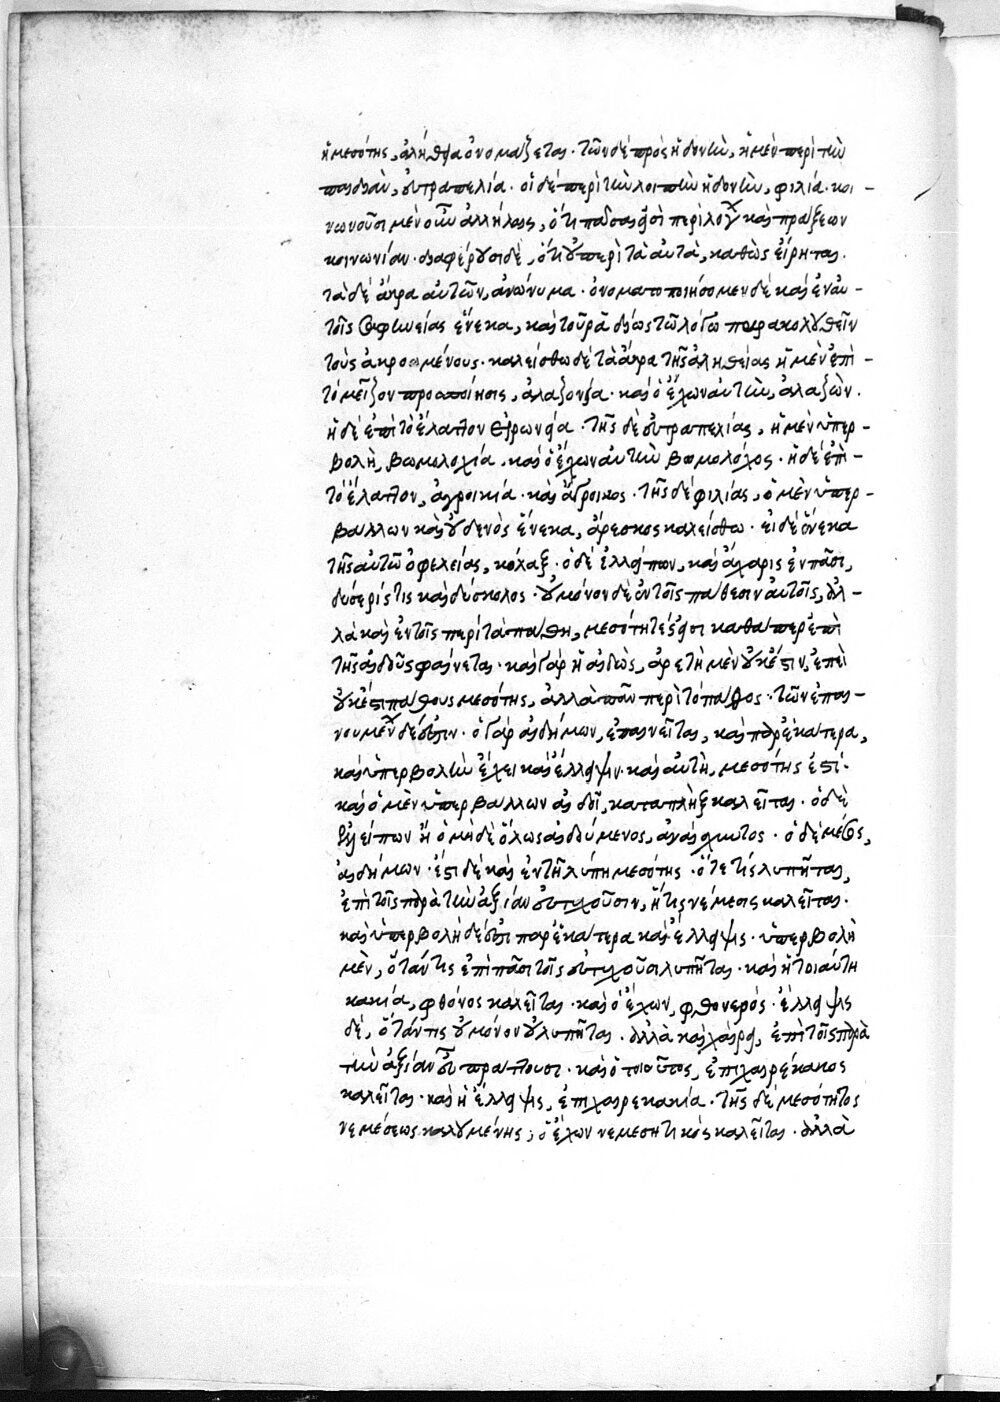 ἡ μεσότης, ἀλήθεια ὀνομάζεται. τῶν δὲ πρὸς ἡδονὴν, ἡ μὲν περὶ τὴν
παιδιὰν, εὐτραπελία. οἱ δὲ περὶ τὴν λοιπὴν ἡδονὴν, φιλία. κοι-
νωνοῦσι μὲν οὖν ἀλλήλαις, ὅτι πᾶσαι εἰσὶ περὶ λόγων καὶ πράξεων
κοινωνίαν. διαφέρουσι δὲ, ὅτι οὐ περὶ τὰ αὐτὰ, καθὼς εἴρηται.
τὰ δὲ ἄκρα αὐτῶν, ἀνώνυμα. ὀνοματοποιήσομεν δὲ καὶ ἐν αὐ-
τοῖς σαφηνείας ἕνεκα, καὶ τοῦ ῥᾳδίως τῷ λόγῳ παρακολουθεῖν
τοὺς ἀκροωμένους. καλείσθω δὲ τὰ ἄκρα τῆς ἀληθείας ἡ μὲν ἐπὶ
τὸ μεῖζον προσποίησις, ἀλαζονεία. καὶ ὁ ἔχων αὐτὴν, ἀλαζών.
ἡ δὲ ἐπὶ τὸ ἔλαττον εἰρωνεία. τῆς δὲ εὐτραπελίας, ἡ μὲν ὑπερ-
βολὴ, βωμολοχία. καὶ ὁ ἔχων αὐτὴν βωμολόχος. ἡ δὲ ἐπὶ-
τὸ ἔλαττον, ἀγροικία. καὶ ἄγροικος. τῆς δὲ φιλίας, ὁ μὲν ὑπερ-
βάλλων καὶ οὐδενὸς ἕνεκα, ἄρεσκος καλείσθω. εἰ δὲ ἕνεκα
τῆς αὐτοῦ ὠφελείας, κόλαξ. ὁ δὲ ἐλλείπων, καὶ ἄχαρις ἐν πᾶσι,
δύσερίς τις καὶ δύσκολος. οὐ μόνον δὲ ἐν τοῖς πάθεσιν αὐτοῖς, ἀλ-
λὰ καὶ ἐν τοῖς περὶ τὰ πάθη, μεσότητές εἰσι καθάπερ ἐπὶ
τῆς αἰδοῦς φαίνεται. καὶ γὰρ ἡ αἰδὼς, ἀρετὴ μὲν οὐκ ἔστιν, ἐπεὶ
οὐκ ἔστι πάθους μεσότης, ἀλλὰ περὶ τὸ πάθος. τῶν ἐπαι-
νουμένων δέ ἐστιν. ὁ γὰρ αἰδήμων, ἐπαινεῖται, καὶ παρ' ἑκάτερα,
καὶ ὑπερβολὴν ἔχει καὶ ἔλλειψιν. καὶ αὐτὴ, μεσότης ἐστί.
καὶ ὁ μὲν ὑπερβάλλων αἰδοῖ, καταπλὴξ καλεῖται. ὁ δὲ
ἐλλείπων ἢ ὁ μηδὲ ὅλως αἰδούμενος, ἀναίσχυντος. ὁ δὲ μέσος,
αἰδήμων. ἔστι δὲ καὶ ἐν τῇ λύπῃ μεσότης. ὅτε τίς λυπῆται,
ἐπὶ τοῖς παρὰ τὴν ἀξίαν εὐτυχοῦσιν, ἥτις νέμεσις καλεῖται.
καὶ ὑπερβολὴ δέ ἐστι παρ' ἑκάτερα καὶ ἔλλειψις. ὑπερβολὴ
μὲν, ὅταν τις ἐπὶ πᾶσι τοῖς εὐτυχοῦσι λυπῆται. καὶ ἡ τοιαύτη
κακία, φθόνος καλεῖται. καὶ ὁ ἔχων, φθονερός. ἔλλειψις
δὲ, ὅταν τις οὐ μόνον οὐ λυπῆται. ἀλλὰ καὶ χαίρῃ, ἐπὶ τοῖς παρὰ
τὴν ἀξίαν εὖ πράττουσι. καὶ ὁ τοιοῦτος, ἐπιχαιρέκακος
καλεῖται. καὶ ἡ ἔλλειψις, ἐπιχαιρεκακία. τῆς δὲ μεσότητος
νεμέσεως καλουμένης, ὁ ἔχων νεμεσητικός καλεῖται. ἀλλὰ